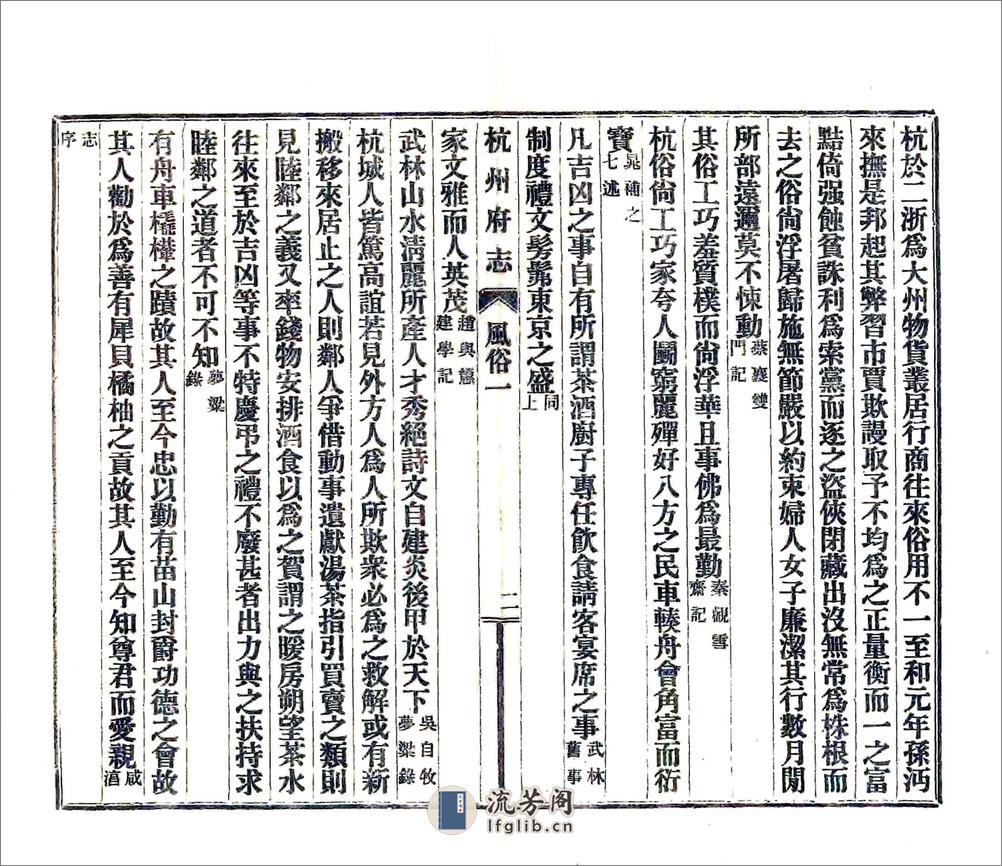 杭於二浙爲大州物貨叢居行商往來俗用不一至和元年孫沔
來撫是邦起其弊習市賈欺謾取予不均爲之正量衡而一之富
黠倚强蝕貧誅利爲索黨而逐之盜俠閉藏出沒無常爲株根而
去之俗尙浮屠歸施無節嚴以約束婦人女子廉潔其行數月閒
所部遠邇莫不悚動蔡襄雙門記
其俗工巧羞質樸而尙浮華且事佛爲最勤秦觀雪齋記
杭俗尙工巧家夸人鬭窮麗殫好八方之民車轊舟會角富而衒
寶晁補之七述
凡吉凶之事自有所謂茶酒廚子專任飮食請客宴席之事武林舊事
制度禮文髣髴東京之盛同上
杭州府志 風俗一 二
家文雅而人英茂趙與𥲅建學記
武林山水淸麗所產人才秀絕詩文自建炎後甲於天下吳自牧夢粱錄
杭城人皆篤高誼若見外方人爲人所欺衆必爲之救解或有新
搬移來居止之人則鄰人爭借動事遺獻湯茶指引買賣之類則
見睦鄰之義又率錢物安排酒食以爲之賀謂之暖房朔望茶水
往來至於吉凶等事不特慶弔之禮不廢甚者出力與之扶持求
睦鄰之道者不可不知夢粱錄
有舟車橇檋之蹟故其人至今忠以勤有苗山封爵功德之會故
其人勸於爲善有犀貝橘柚之貢故其人至今知尊君而愛親咸淳
志序
流芳阁
lfglib.cn